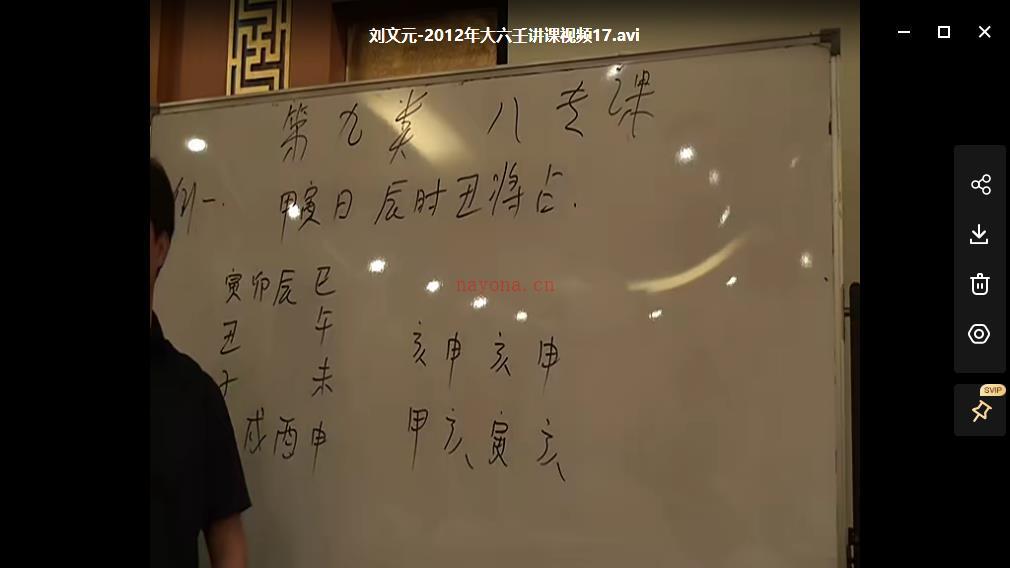 刘文元-2012年大六壬讲课视频17.avi
第九类 八专课
例一. 甲寅日 辰时丑将占.
寅卯辰巳
丑 午
子 未
戌酉申
亥申亥申
甲亥寅亥
nayona.cn
SVIP